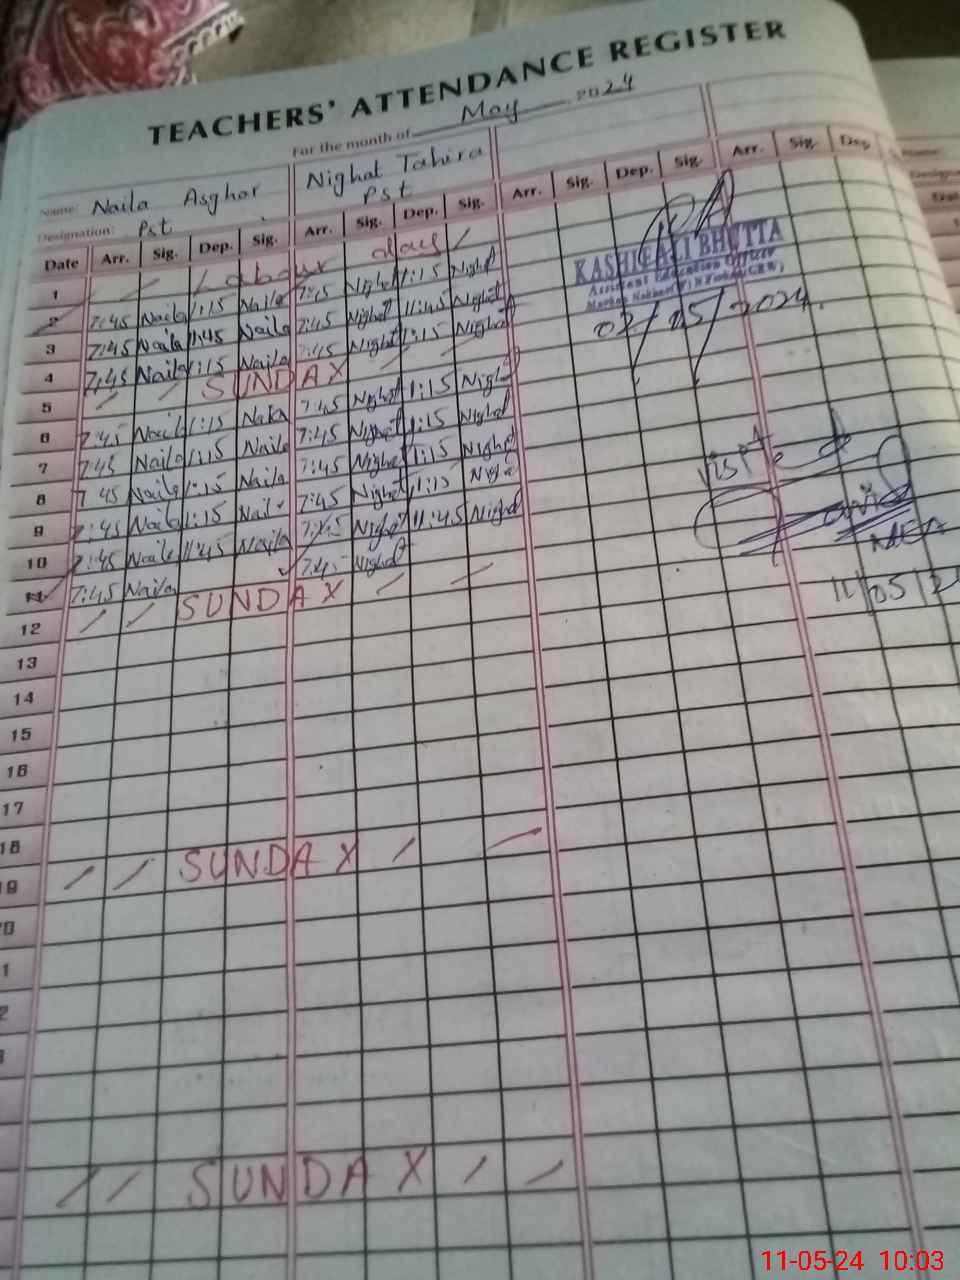 TEACHERS' ATTENDANCE REGISTER
For the month of May 2024
Name: Naila Asghar Nighat Tahira
Designation: Pst Pst
Date Arr. Sig. Dep. Sig. Arr. Sig. Dep. Sig. Arr. Sig. Dep. Sig. Arr. Sig. Dep
1 / / Labour day /
2 7:45 Naila 1:15 Naila 7:45 Nighat 1:15 Nighat
3 7:45 Naila 11:45 Naila 7:45 Nighat 11:45 Nighat
4 7:45 Naila 1:15 Naila 7:45 Nighat 1:15 Nighat
5 / / SUNDAY / /
6 7:45 Naila 1:15 Naila 7:45 Nighat 1:15 Nighat
7 7:45 Naila 1:15 Naila 7:45 Nighat 1:15 Nighat
8 7:45 Naila 1:15 Naila 7:45 Nighat 1:15 Nighat
9 7:45 Naila 1:15 Naila 7:45 Nighat 1:15 Nighat
10 7:45 Naila 11:45 Naila 7:45 Nighat 11:45 Nighat
11 7:45 Naila 7:45 Nighat
12 / / SUNDAY / /
13
14
15
16
17
18
19 / / SUNDAY / /
/ / SUNDAY / /
KASHIF ALI BHUTTA
Assistant Education Officer
02/05/2024.
Visit
11/05/2
11-05-24 10:03